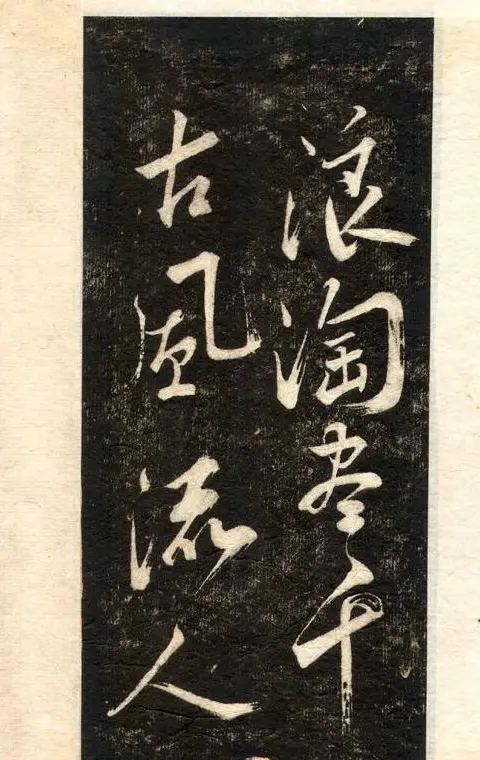 浪淘尽千
古风流人